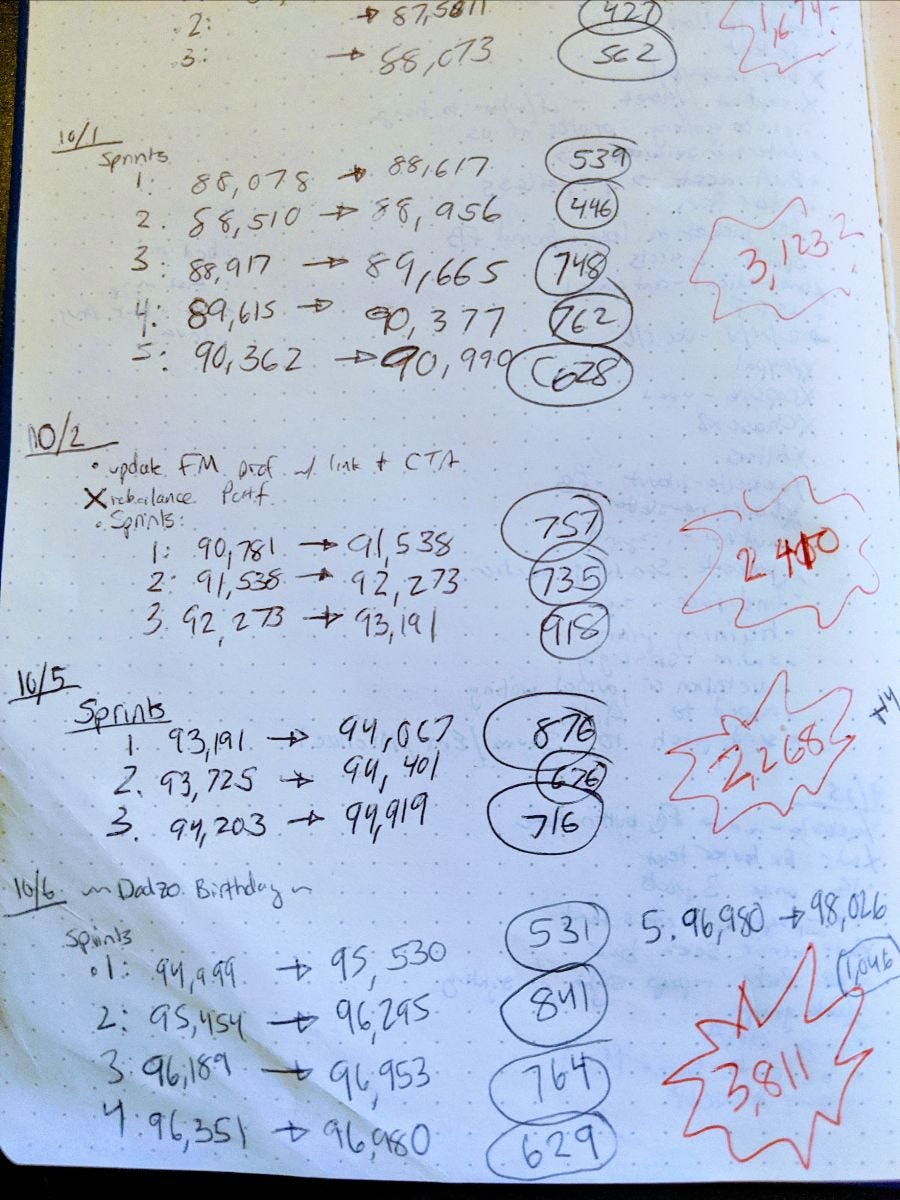 2: → 87,5811 427
3: → 88,073 562
1,674
10/1
Sprints
1: 88,078 → 88,617 539
2. 88,510 → 88,956 446
3: 88,917 → 89,665 748
3,123
4: 89,615 → 90,377 762
5: 90,362 → 90,990 628
10/2
• update FM prof w/ link + CTA
X rebalance Portf
• Sprints:
1: 90,781 → 91,538 757
2: 91,538 → 92,273 735
3. 92,273 → 93,191 918
2410
10/5
Sprints
1. 93,191 → 94,067 876
2. 93,725 → 94,401 676
3. 94,203 → 94,919 716
2,268
10/6 ~ Dadzo Birthday ~
Sprints
• 1: 94,999 → 95,530 531
2: 95,454 → 96,295 841
3. 96,189 → 96,953 764
4. 96,351 → 96,980 629
5. 96,980 → 98,026
1,046
3,811